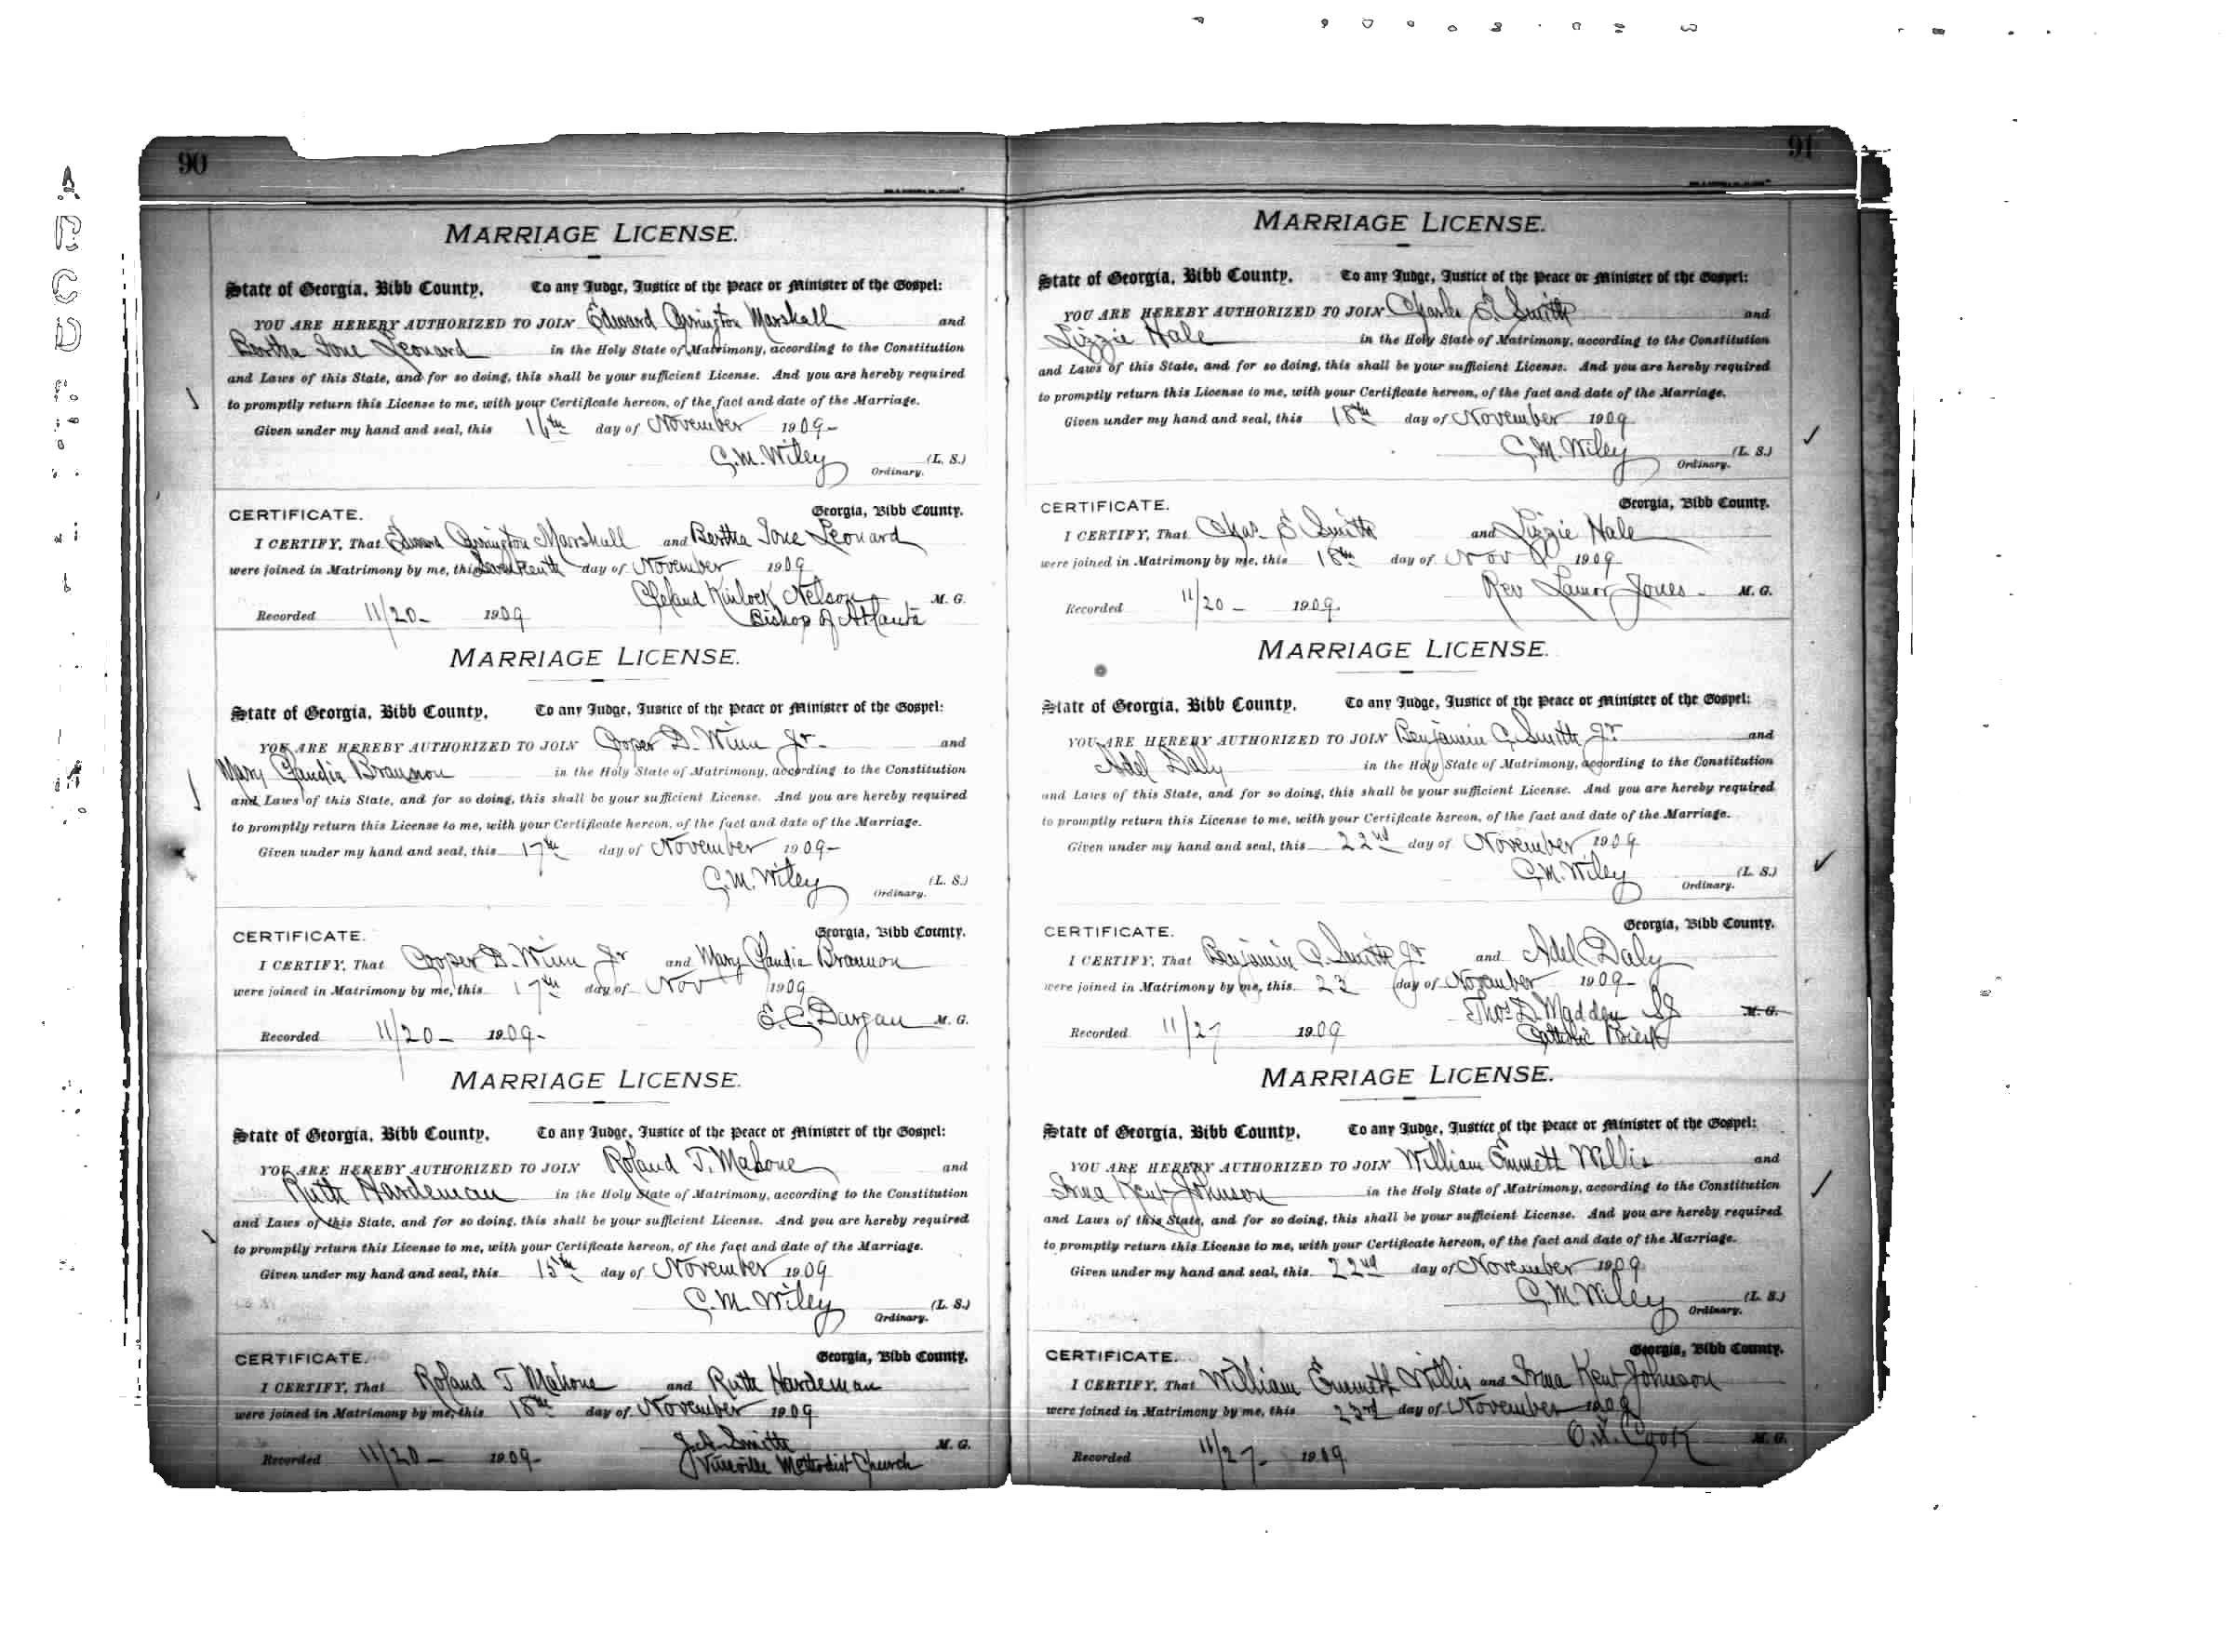 90
MARRIAGE LICENSE.
State of Georgia, Bibb County. To any Judge, Justice of the Peace or Minister of the Gospel:
YOU ARE HEREBY AUTHORIZED TO JOIN Edward Arrington Marshall and
Bertha Ione Leonard in the Holy State of Matrimony, according to the Constitution
and Laws of this State, and for so doing, this shall be your sufficient License. And you are hereby required
to promptly return this License to me, with your Certificate hereon, of the fact and date of the Marriage.
Given under my hand and seal, this 16th day of November 1909-
C.M. Wiley (L. S.)
Ordinary.
CERTIFICATE. Georgia, Bibb County.
I CERTIFY, That Edward Arrington Marshall and Bertha Ione Leonard
were joined in Matrimony by me, this Seventeenth day of November 1909
Cleland Kinlock Nelson M. G.
Bishop of Atlanta
Recorded 11/20- 1909
MARRIAGE LICENSE.
State of Georgia, Bibb County. To any Judge, Justice of the Peace or Minister of the Gospel:
YOU ARE HEREBY AUTHORIZED TO JOIN Cooper D. Winn Jr- and
Mary Claudia Brannon in the Holy State of Matrimony, according to the Constitution
and Laws of this State, and for so doing, this shall be your sufficient License. And you are hereby required
to promptly return this License to me, with your Certificate hereon, of the fact and date of the Marriage.
Given under my hand and seal, this 17th day of November 1909-
C.M. Wiley (L. S.)
Ordinary.
CERTIFICATE. Georgia, Bibb County.
I CERTIFY, That Cooper D. Winn Jr and Mary Claudia Brannon
were joined in Matrimony by me, this 17th day of Nov 1909
E.C. Dargan M. G.
Recorded 11/20- 1909-
MARRIAGE LICENSE.
State of Georgia, Bibb County. To any Judge, Justice of the Peace or Minister of the Gospel:
YOU ARE HEREBY AUTHORIZED TO JOIN Roland T. Mahone and
Ruth Hardeman in the Holy State of Matrimony, according to the Constitution
and Laws of this State, and for so doing, this shall be your sufficient License. And you are hereby required
to promptly return this License to me, with your Certificate hereon, of the fact and date of the Marriage.
Given under my hand and seal, this 15th day of November 1909
C.M. Wiley (L. S.)
Ordinary.
CERTIFICATE. Georgia, Bibb County.
I CERTIFY, That Roland T Mahone and Ruth Hardeman
were joined in Matrimony by me, this 18th day of November 1909
J.A. Smith M. G.
Vineville Methodist Church
Recorded 11/20- 1909-
91
MARRIAGE LICENSE.
State of Georgia, Bibb County. To any Judge, Justice of the Peace or Minister of the Gospel:
YOU ARE HEREBY AUTHORIZED TO JOIN Charles E. Smith and
Lizzie Hale in the Holy State of Matrimony, according to the Constitution
and Laws of this State, and for so doing, this shall be your sufficient License. And you are hereby required
to promptly return this License to me, with your Certificate hereon, of the fact and date of the Marriage.
Given under my hand and seal, this 18th day of November 1909
C.M. Wiley (L. S.)
Ordinary.
CERTIFICATE. Georgia, Bibb County.
I CERTIFY, That Chas. E Smith and Lizzie Hale
were joined in Matrimony by me, this 18th day of Nov 1909
Rev Lamor Jones- M. G.
Recorded 11/20- 1909.
MARRIAGE LICENSE.
State of Georgia, Bibb County. To any Judge, Justice of the Peace or Minister of the Gospel:
YOU ARE HEREBY AUTHORIZED TO JOIN Benjamin C. Smith Jr and
Adel Daly in the Holy State of Matrimony, according to the Constitution
and Laws of this State, and for so doing, this shall be your sufficient License. And you are hereby required
to promptly return this License to me, with your Certificate hereon, of the fact and date of the Marriage.
Given under my hand and seal, this 22nd day of November 1909
C.M. Wiley (L. S.)
Ordinary.
CERTIFICATE. Georgia, Bibb County.
I CERTIFY, That Benjamin C. Smith Jr and Adel Daly
were joined in Matrimony by me, this 23 day of November 1909-
Thos D. Madden SJ M. G.
Catholic Priest
Recorded 11/27 1909
MARRIAGE LICENSE.
State of Georgia, Bibb County. To any Judge, Justice of the Peace or Minister of the Gospel:
YOU ARE HEREBY AUTHORIZED TO JOIN William Emmett Willis and
Irma Kent Johnson in the Holy State of Matrimony, according to the Constitution
and Laws of this State, and for so doing, this shall be your sufficient License. And you are hereby required
to promptly return this License to me, with your Certificate hereon, of the fact and date of the Marriage.
Given under my hand and seal, this 22nd day of November 1909
C.M. Wiley (L. S.)
Ordinary.
CERTIFICATE. Georgia, Bibb County.
I CERTIFY, That William Emmett Willis and Irma Kent Johnson
were joined in Matrimony by me, this 23rd day of November 1909
Cook M. G.
Recorded 11/27- 1909